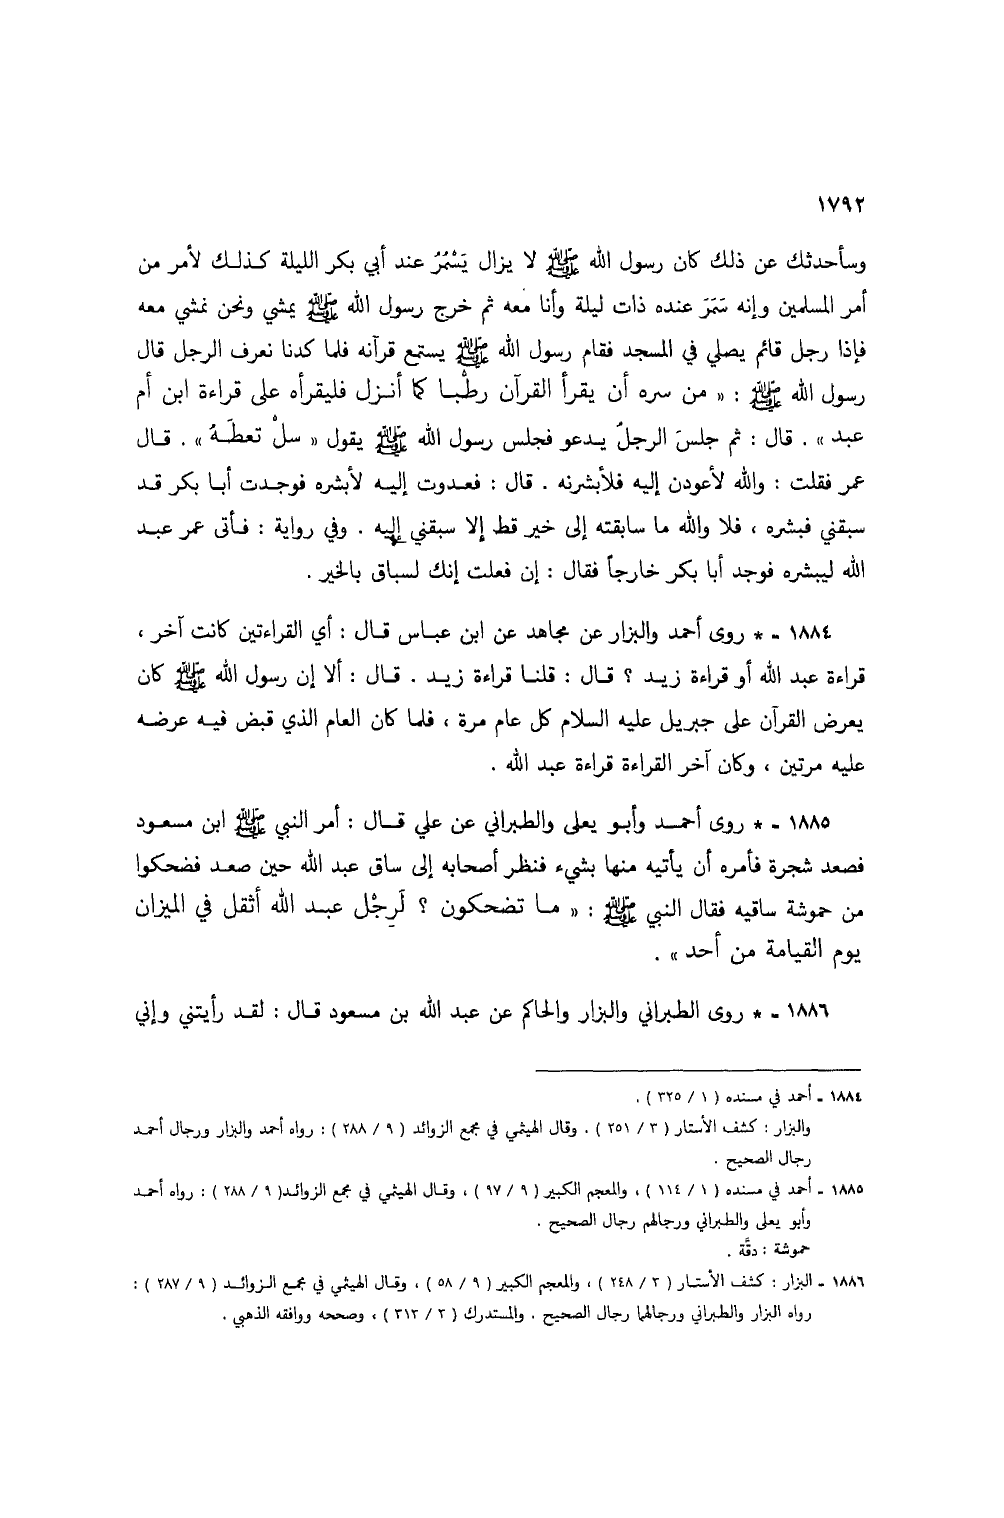 ١٧٩٢
وسأحدثك عن ذلك كان رسول الله ﷺ لا يزال يَسْمُرُ عند أبي بكر الليلة كـذلـك لأمر من
أمر المسلمين وإنه سَمَرَ عنده ذات ليلة وأنا معه ثم خرج رسول الله ﷺ يمشي ونحن نمشي معه
فإذا رجل قائم يصلي في المسجد فقام رسول الله ﷺ يستمع قرآنه فلما كدنا نعرف الرجل قال
رسول الله ﷺ : « من سره أن يقرأ القرآن رطْبـا كما أنـزل فليقرأه على قراءة ابن أم
عبد » . قال : ثم جلسَ الرجلُ يـدعو فجلس رسول الله ﷺ يقول « سلْ تعطَـهْ » . قـال
عمر فقلت : والله لأعودن إليه فلأبشرنه . قال : فعـدوت إليـه لأبشره فوجـدت أبـا بكر قـد
سبقني فبشره ، فلا والله ما سابقته إلى خير قط إلا سبقني إليه . وفي رواية : فـأتى عمر عبـد
الله ليبشره فوجد أبا بكر خارجاً فقال : إن فعلت إنك لسباق بالخير .
١٨٨٤ - * روى أحمد والبزار عن مجاهد عن ابن عبـاس قـال : أي القراءتين كانت آخر ،
قراءة عبد الله أو قراءة زيـد ؟ قـال : قلنـا قراءة زيـد . قـال : ألا إن رسول الله ﷺ كان
يعرض القرآن على جبريل عليه السلام كل عام مرة ، فلما كان العام الذي قبض فيـه عرضـه
عليه مرتين ، وكان آخر القراءة قراءة عبد الله .
١٨٨٥ - * روى أحمـد وأبـو يعلى والطبراني عن علي قـال : أمر النبي ﷺ ابن مسعـود
فصعد شجرة فأمره أن يأتيه منها بشيء فنظر أصحابه إلى ساق عبد الله حين صعـد فضحكوا
من حموشة ساقيه فقال النبي ﷺ : « مـا تضحكون ؟ لَرِجْل عبـد الله أثقل في الميزان
يوم القيامة من أحد » .
١٨٨٦ - * روى الطبراني والبزار والحاكم عن عبد الله بن مسعود قـال : لقـد رأيتني وإني
١٨٨٤ - أحمد في مسنده ( ١ / ٣٢٥ ) .
والبزار : كشف الأستار ( ٣ / ٢٥١ ) . وقال الهيثمي في مجمع الزوائد ( ٩ / ٢٨٨ ) : رواه أحمد والبزار ورجال أحمـد
رجال الصحيح .
١٨٨٥ - أحمد في مسنده ( ١ / ١١٤ ) ، والمعجم الكبير ( ٩ / ٩٧ ) ، وقـال الهيثمي في مجمع الزوائـد( ٩ / ٢٨٨ ) : رواه أحمـد
وأبو يعلى والطبراني ورجالهم رجال الصحيح .
حموشة : دقَّة .
١٨٨٦ - البزار : كشف الأستـار ( ٣ / ٢٤٨ ) ، والمعجم الكبير ( ٩ / ٥٨ ) ، وقـال الهيثمي في مجمـع الـزوائـد ( ٩ / ٢٨٧ ) :
رواه البزار والطبراني ورجالهما رجال الصحيح . والمستدرك ( ٣ / ٣١٣ ) ، وصححه ووافقه الذهبي .